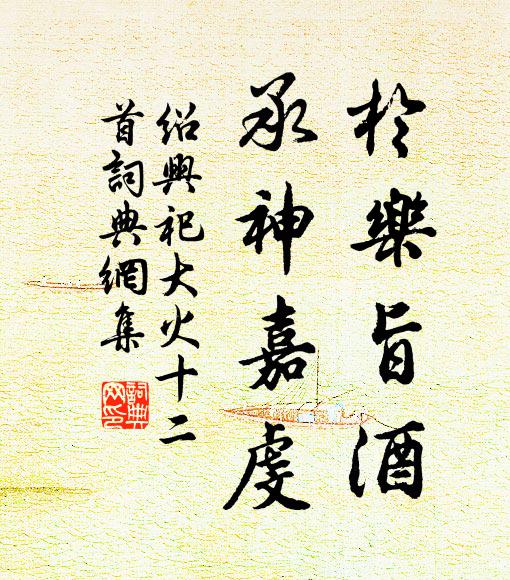 於樂旨酒
承神嘉虔
紹興祀大火十二
首詞典網集
詞典
网印